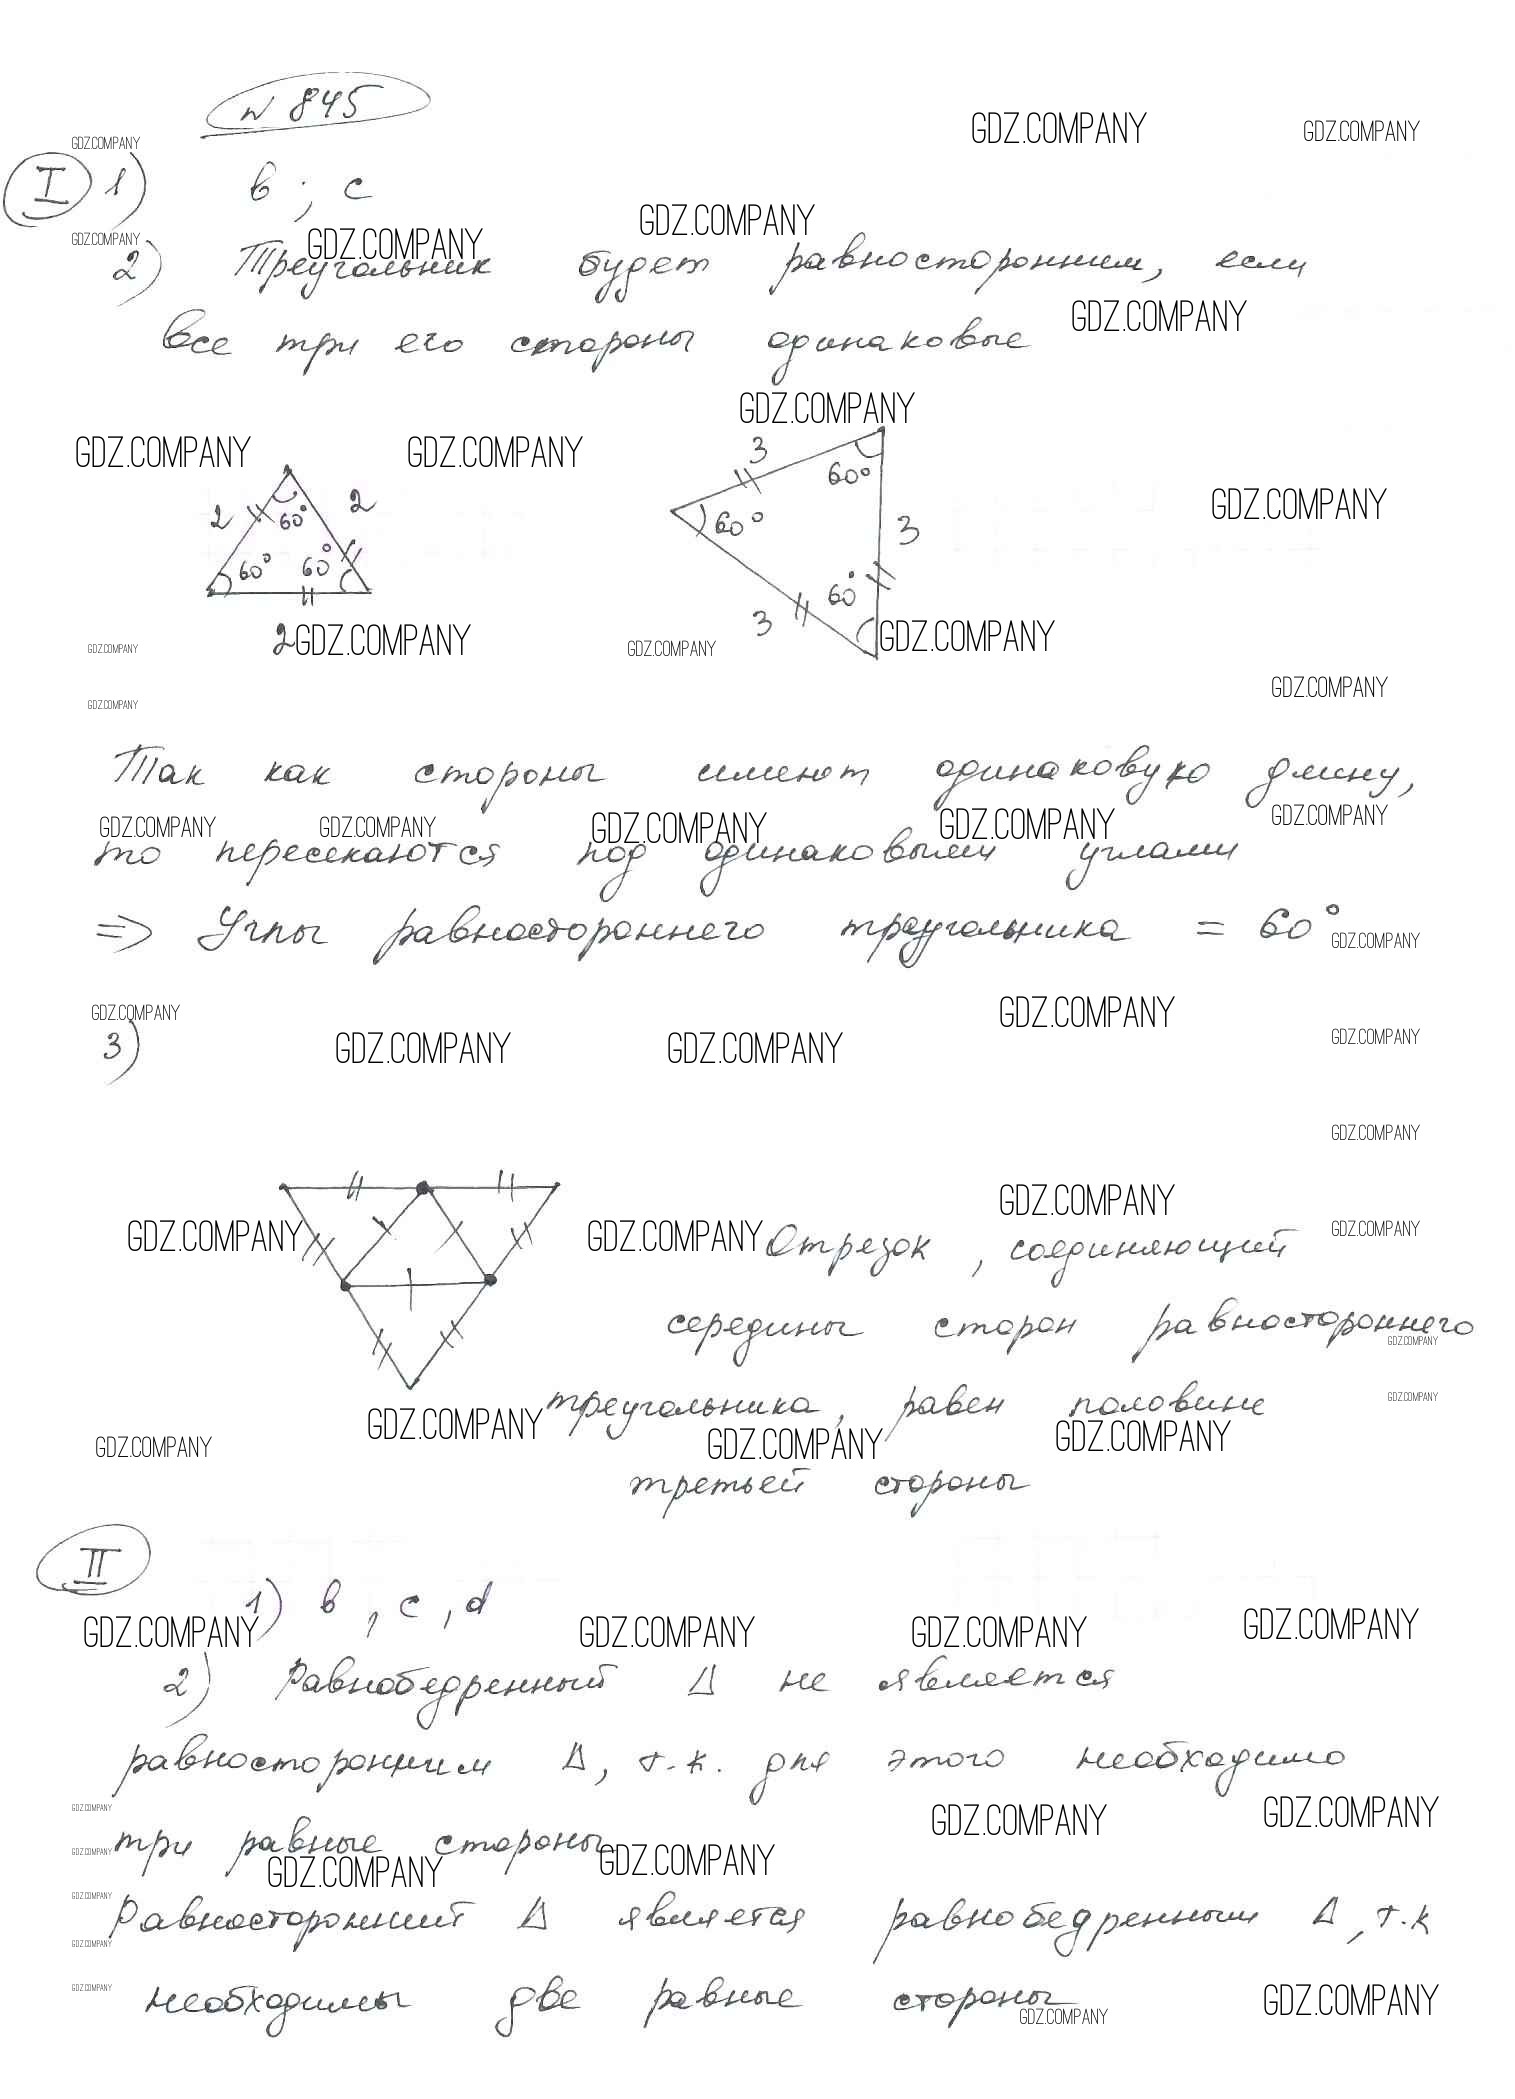 N 845
GDZ.COMPANY GDZ.COMPANY
GDZ.COMPANY
I 1) в ; с
GDZ.COMPANY
GDZ.COMPANY GDZ.COMPANY
2) Треугольник будет равносторонним, если
GDZ.COMPANY
все три его стороны одинаковые
GDZ.COMPANY
GDZ.COMPANY GDZ.COMPANY
3
60°
GDZ.COMPANY
2 2 60°
60° 3
60° 60°
60°
3
2 GDZ.COMPANY GDZ.COMPANY
GDZ.COMPANY GDZ.COMPANY
GDZ.COMPANY
GDZ.COMPANY
Так как стороны имеют одинаковую длину,
GDZ.COMPANY GDZ.COMPANY GDZ.COMPANY GDZ.COMPANY GDZ.COMPANY
то пересекаются под одинаковыми углами
=> Углы равностороннего треугольника = 60°
GDZ.COMPANY
GDZ.COMPANY GDZ.COMPANY
3) GDZ.COMPANY GDZ.COMPANY GDZ.COMPANY
GDZ.COMPANY
GDZ.COMPANY
GDZ.COMPANY GDZ.COMPANY GDZ.COMPANY
Отрезок , соединяющий
середины сторон равностороннего
GDZ.COMPANY
треугольника, равен половине
GDZ.COMPANY
GDZ.COMPANY GDZ.COMPANY GDZ.COMPANY GDZ.COMPANY
третьей стороны
II
1) в , с , d
GDZ.COMPANY GDZ.COMPANY GDZ.COMPANY GDZ.COMPANY
2) Равнобедренный Δ не является
равносторонним Δ, т.к. для этого необходимо
GDZ.COMPANY GDZ.COMPANY GDZ.COMPANY
три равные стороны
GDZ.COMPANY GDZ.COMPANY GDZ.COMPANY
GDZ.COMPANY
Равносторонний Δ является равнобедренным Δ, т.к
GDZ.COMPANY
GDZ.COMPANY
необходимы две равные стороны
GDZ.COMPANY GDZ.COMPANY